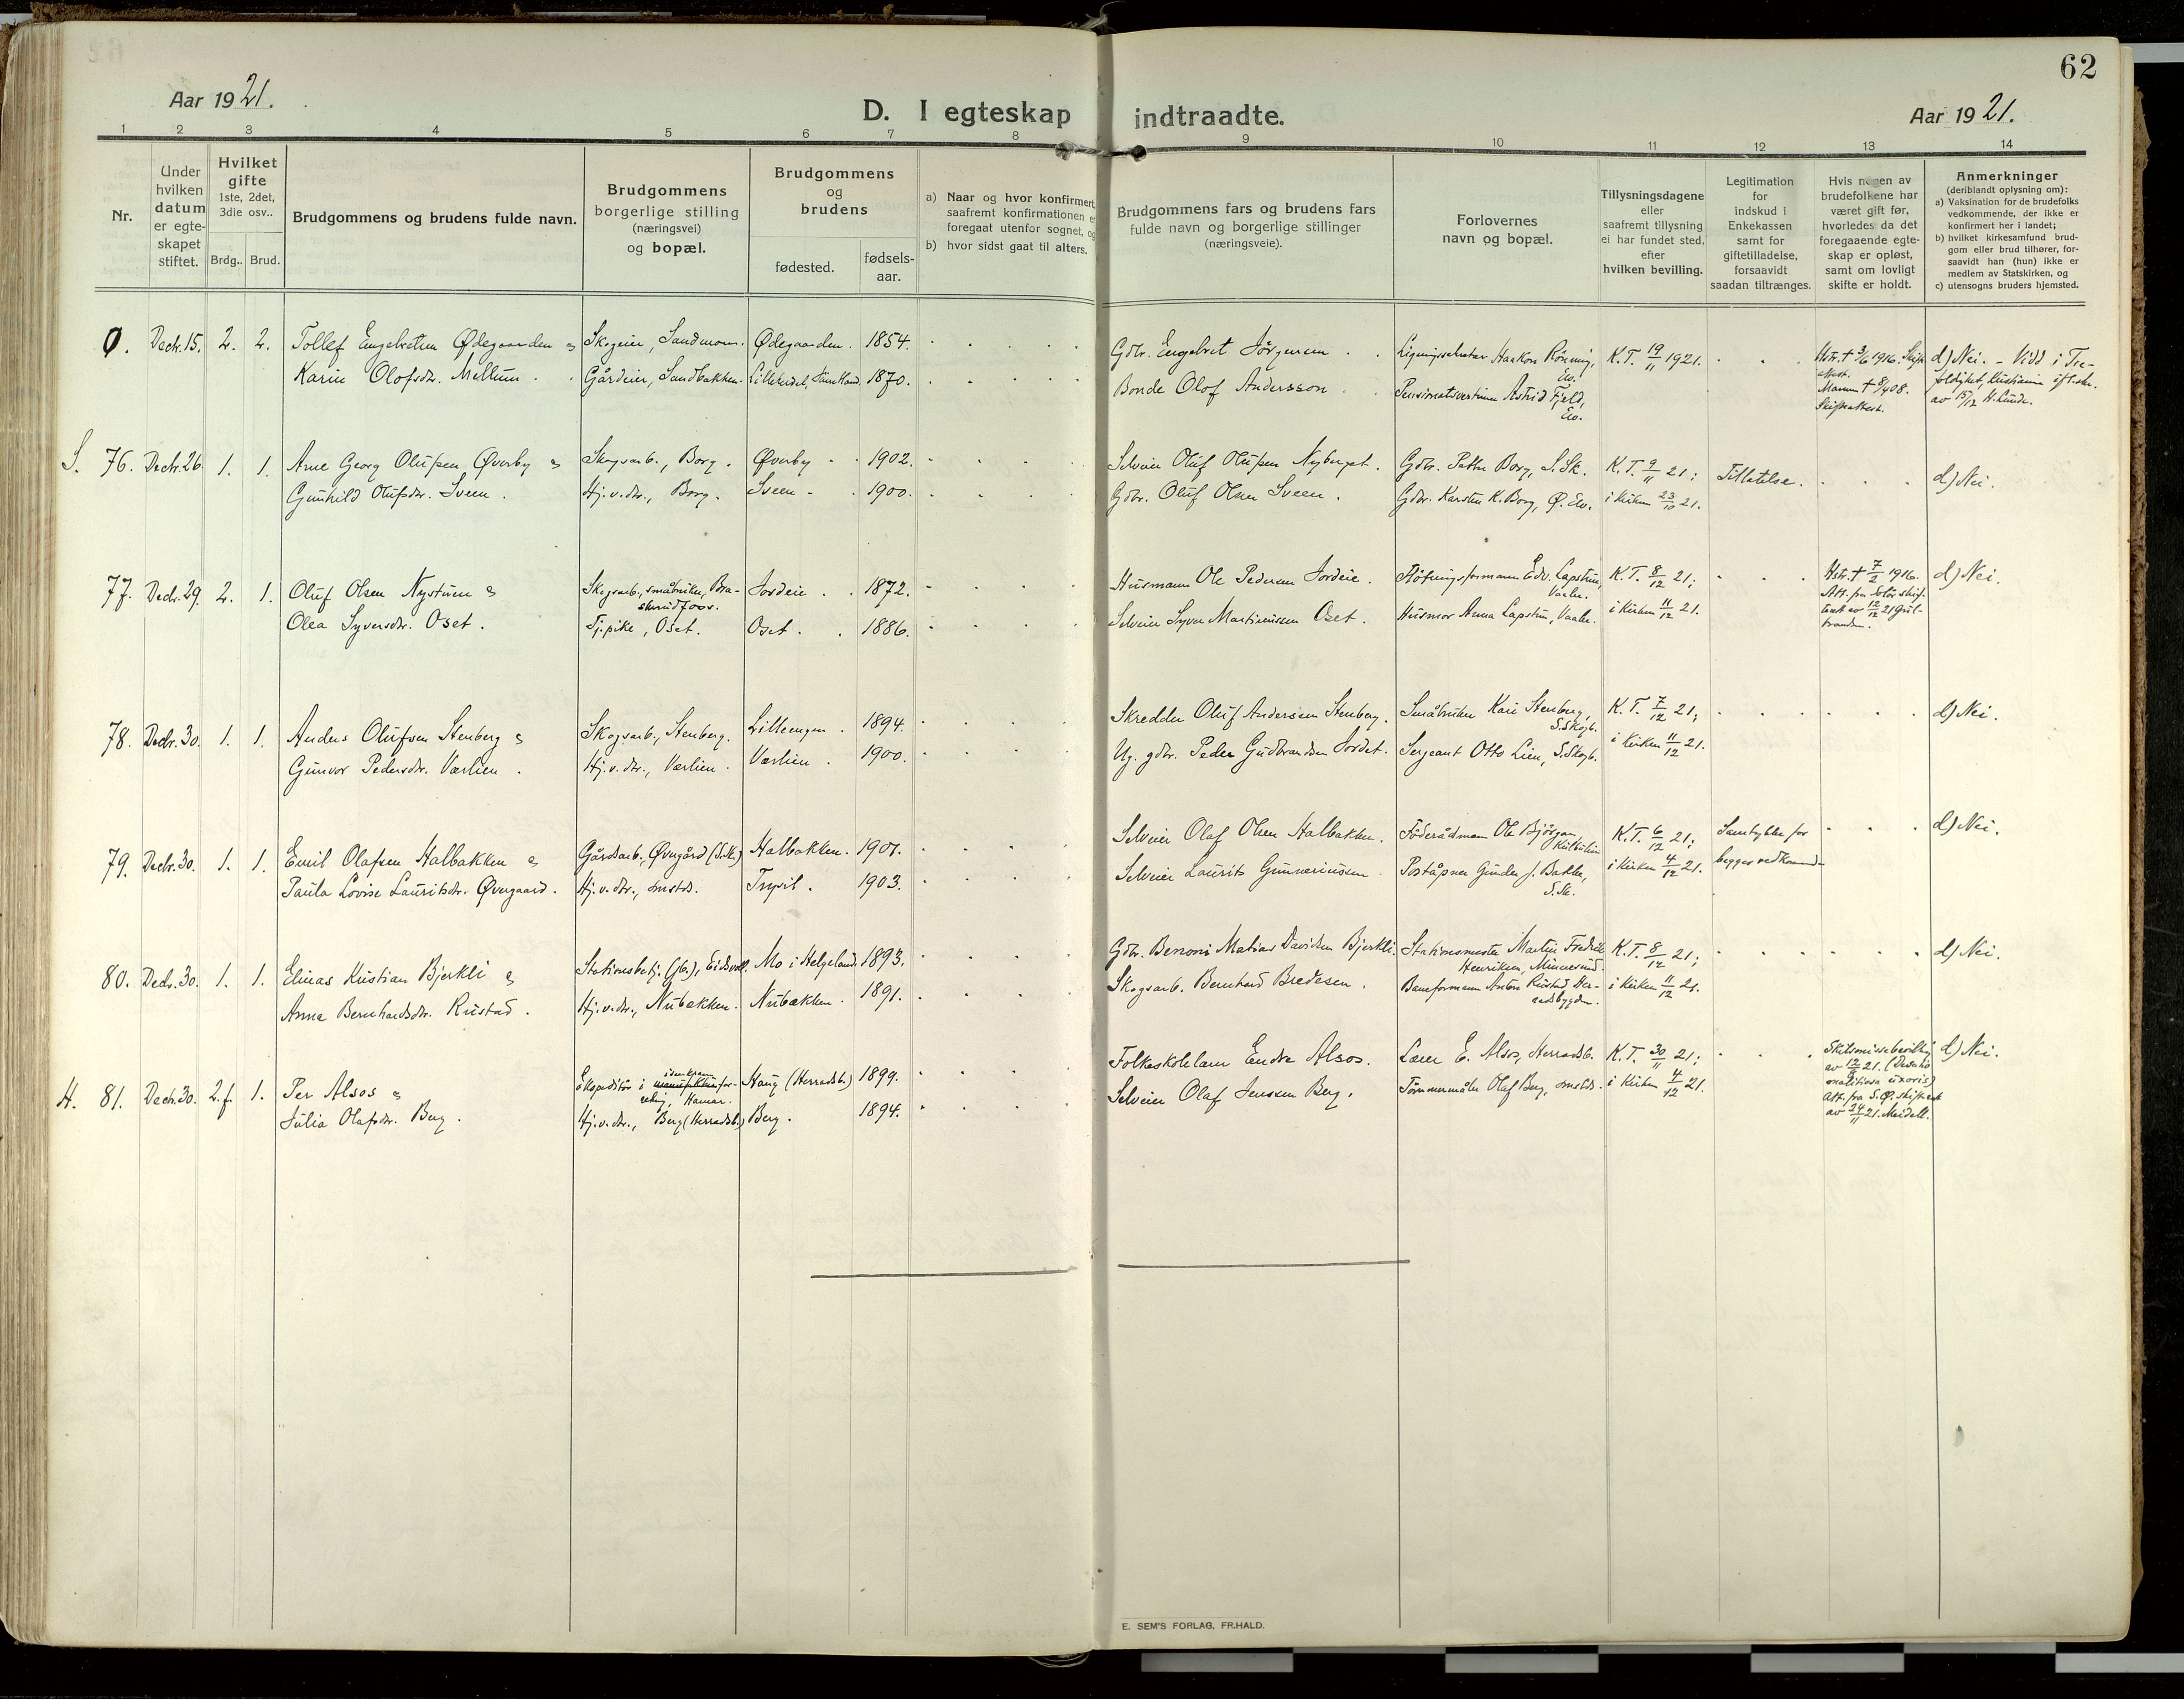 62
Aar 1921.
D. I egteskap indtraadte.
Aar 1921.
1 2 3 4 5 6 7 8 9 10 11 12 13 14
Nr.
Under
hvilken
datum
er egte-
skapet
stiftet.
Hvilket
gifte
1ste, 2det,
3die osv..
Brdg.. Brud.
Brudgommens og brudens fulde navn.
Brudgommens
borgerlige stilling
(næringsvei)
og bopæl.
Brudgommens
og
brudens
fødested.
fødsels-
aar.
a) Naar og hvor konfirmert,
saafremt konfirmationen er
foregaat utenfor sognet, og
b) hvor sidst gaat til alters.
Brudgommens fars og brudens fars
fulde navn og borgerlige stillinger
(næringsveie).
Forlovernes
navn og bopæl.
Tillysningsdagene
eller
saafremt tillysning
ei har fundet sted,
efter
hvilken bevilling.
Legitimation
for
indskud i
Enkekassen
samt for
giftetilladelse,
forsaavidt
saadan tiltrænges.
Hvis nogen av
brudefolkene har
været gift før,
hvorledes da det
foregaaende egte-
skap er opløst,
samt om lovligt
skifte er holdt.
Anmerkninger
(deriblandt oplysning om):
a) Vaksination for de brudefolks
vedkommende, der ikke er
konfirmert her i landet;
b) hvilket kirkesamfund brud-
gom eller brud tilhører, for-
saavidt han (hun) ikke er
medlem av Statskirken, og
c) utensogns bruders hjemsted.
0. Decbr. 15. 2. 2. Tollef Engebretsen Ødegaarden & Skogeier, Sandmoen. Ødegaarden. 1854. Gdbr. Engebret Jörgensen. Haakon Rönning, Elv. K. T. 19/11 1921. Hstr. † 3/6 1916. Skifte- d) Nei. - Vidd i Tre-
Karin Olofsdr. Mellum. Gårdeier, Sandbakken. 1870. Bonde Olof Andersson. Pensionatsvertinne Astrid Fjeld, Elv. attest. Mannen † 8/4 08. Skifteattest. foldighet, Kristiania av 15/12 H. Lunde.
S. 76. Decbr. 26. 1. 1. Arne Georg Olufsen Øverby & Skogsarb., Borg. Øverby 1902. Selveier Oluf Olufsen Nyberget. Gdbr. Petter Borg, S. Sk. K. T. 9/11 21; Tillatelse. d) Nei.
Gunhild Olufsdr. Sveen. Hj. v. dtr., Borg. Sveen 1900. Gdbr. Oluf Olsen Sveen. Gdbr. Karsten K. Borg, Ø. Elv. i kirken 23/10 21.
77. Decbr. 29. 2. 1. Oluf Olsen Nystuen & Skogsarb., småbruker, Bra- Jordeie. 1872. Husmann Ole Pedersen Jordeie. Flötningsformann Edv. Lapstuen, Vaaler. K. T. 8/12 21; Hstr. † 7/2 1916. d) Nei.
skerudfoss.
Olea Syversdr. Oset. Tj. pike, Oset. Oset. 1886. Selveier Syver Martiniussen Oset. Husmor Anna Lapstuen, Vaaler. i kirken 11/12 21. Att. fra Solör skif- terett av 12/12 21 Gul- brandsen.
78. Decbr. 30. 1. 1. Anders Olufsen Stenberg & Skogsarb., Stenberg. Lilleengen. 1894. Skredder Oluf Andersen Stenberg. Småbruker Kari Stenberg, S. Skogb. K. T. 7/12 21; d) Nei.
Gunvor Pedersdr. Værlien. Hj. v. dtr., Værlien. Værlien. 1900. Ug. gdbr. Peder Gudbrandsen Jordet. Sergeant Otto Lien, S. Skogb. i kirken 11/12 21.
79. Decbr. 30. 1. 1. Emil Olafsen Halbakken & Gårdsarb., Øvergård (S. Sk.) Halbakken. 1901. Selveier Olaf Olsen Halbakken. Föderådsmann Ole Bjørgan, K. T. 6/12 21; Samtykke for d) Nei.
Paula Lovise Lauritsdr. Øvergaard. Hj. v. dtr., smstds. Trysil. 1903. Selveier Laurits Gunneriussen. Poståpner Gunder J. Bakken, S. Sk. i kirken 4/12 21. begges vedkommende
80. Decbr. 30. 1. 1. Elinas Kristian Bjerkli & Stationsbetj. (jb.), Eidsvoll. Mo i Helgeland. 1893. Gdbr. Benoni Matias Davidsen Bjerkli. Stationsmester Martin Fredrik Henriksen, Minnesund. K. T. 8/12 21; d) Nei.
Anna Bernhardsdr. Rustad. Hj. v. dtr., Nubakken. Nubakken. 1891. Skogsarb. Bernhard Bredesen. Baneformann Anton Rustad, Her- radsbygden. i kirken 11/12 21.
H. 81. Decbr. 30. 2. f. 1. Per Alsos & Ekspeditör i isenkram manufakturfor- retning, Hamar. Haug (Herradsb.) 1899. Folkeskolelærer Endre Alsos. Lærer E. Alsos, Herradsb. K. T. 30/11 21; Skilsmissebevilling d) Nei.
Julia Olafsdr. Berg. Hj. v. dtr., Berg (Herradsb.) Berg. 1894. Selveier Olaf Jenssen Berg. Tömmermåler Olaf Berg, smstds. i kirken 4/12 21. av 12/8 21. (Desertio malitiosa uxoris) Att. fra S. Ø. skifterett av 24/11 21. Meidell.
E. SEM'S FORLAG, FR.HALD.